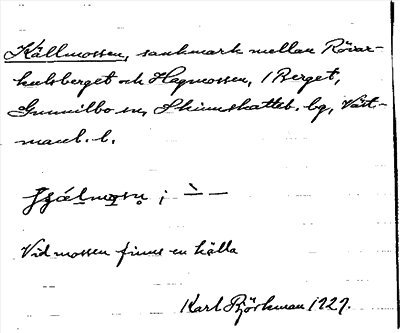 Källmossen, sankmark mellan Rövar-
kulsberget och Hagmossen, 1 Berget,
Gunnilbo sn, Skinnskatteb. bg, Väst-
manl. l.
; ` —
Vid mossen finns en källa
Karl Björkman 1927.